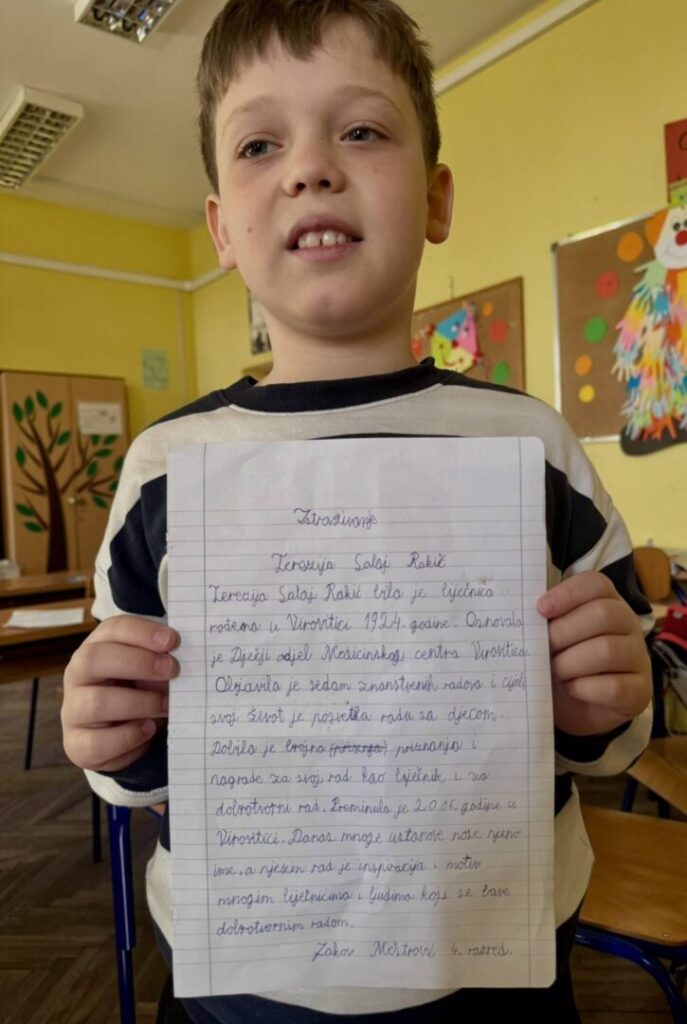 Istraživanje
Terezija Salaj Rakić
Terezija Salaj Rakić bila je liječnica
rođena u Virovitici 1924. godine. Osnovala
je Dječji odjel Medicinskog centra Virovitica.
Objavila je sedam znanstvenih radova i cijeli
svoj život je posvetila radu sa djecom.
Dobila je brojna priznanja i
nagrade za svoj rad kao liječnik i za
dobrotvorni rad. Preminula je 2006. godine u
Virovitici. Danas mnoge ustanove nose njeno
ime, a njezin rad je inspiracija i motiv
mnogim liječnicima i ljudima koji se bave
dobrotvornim radom.
Jakov Meštrović, 4. razred.